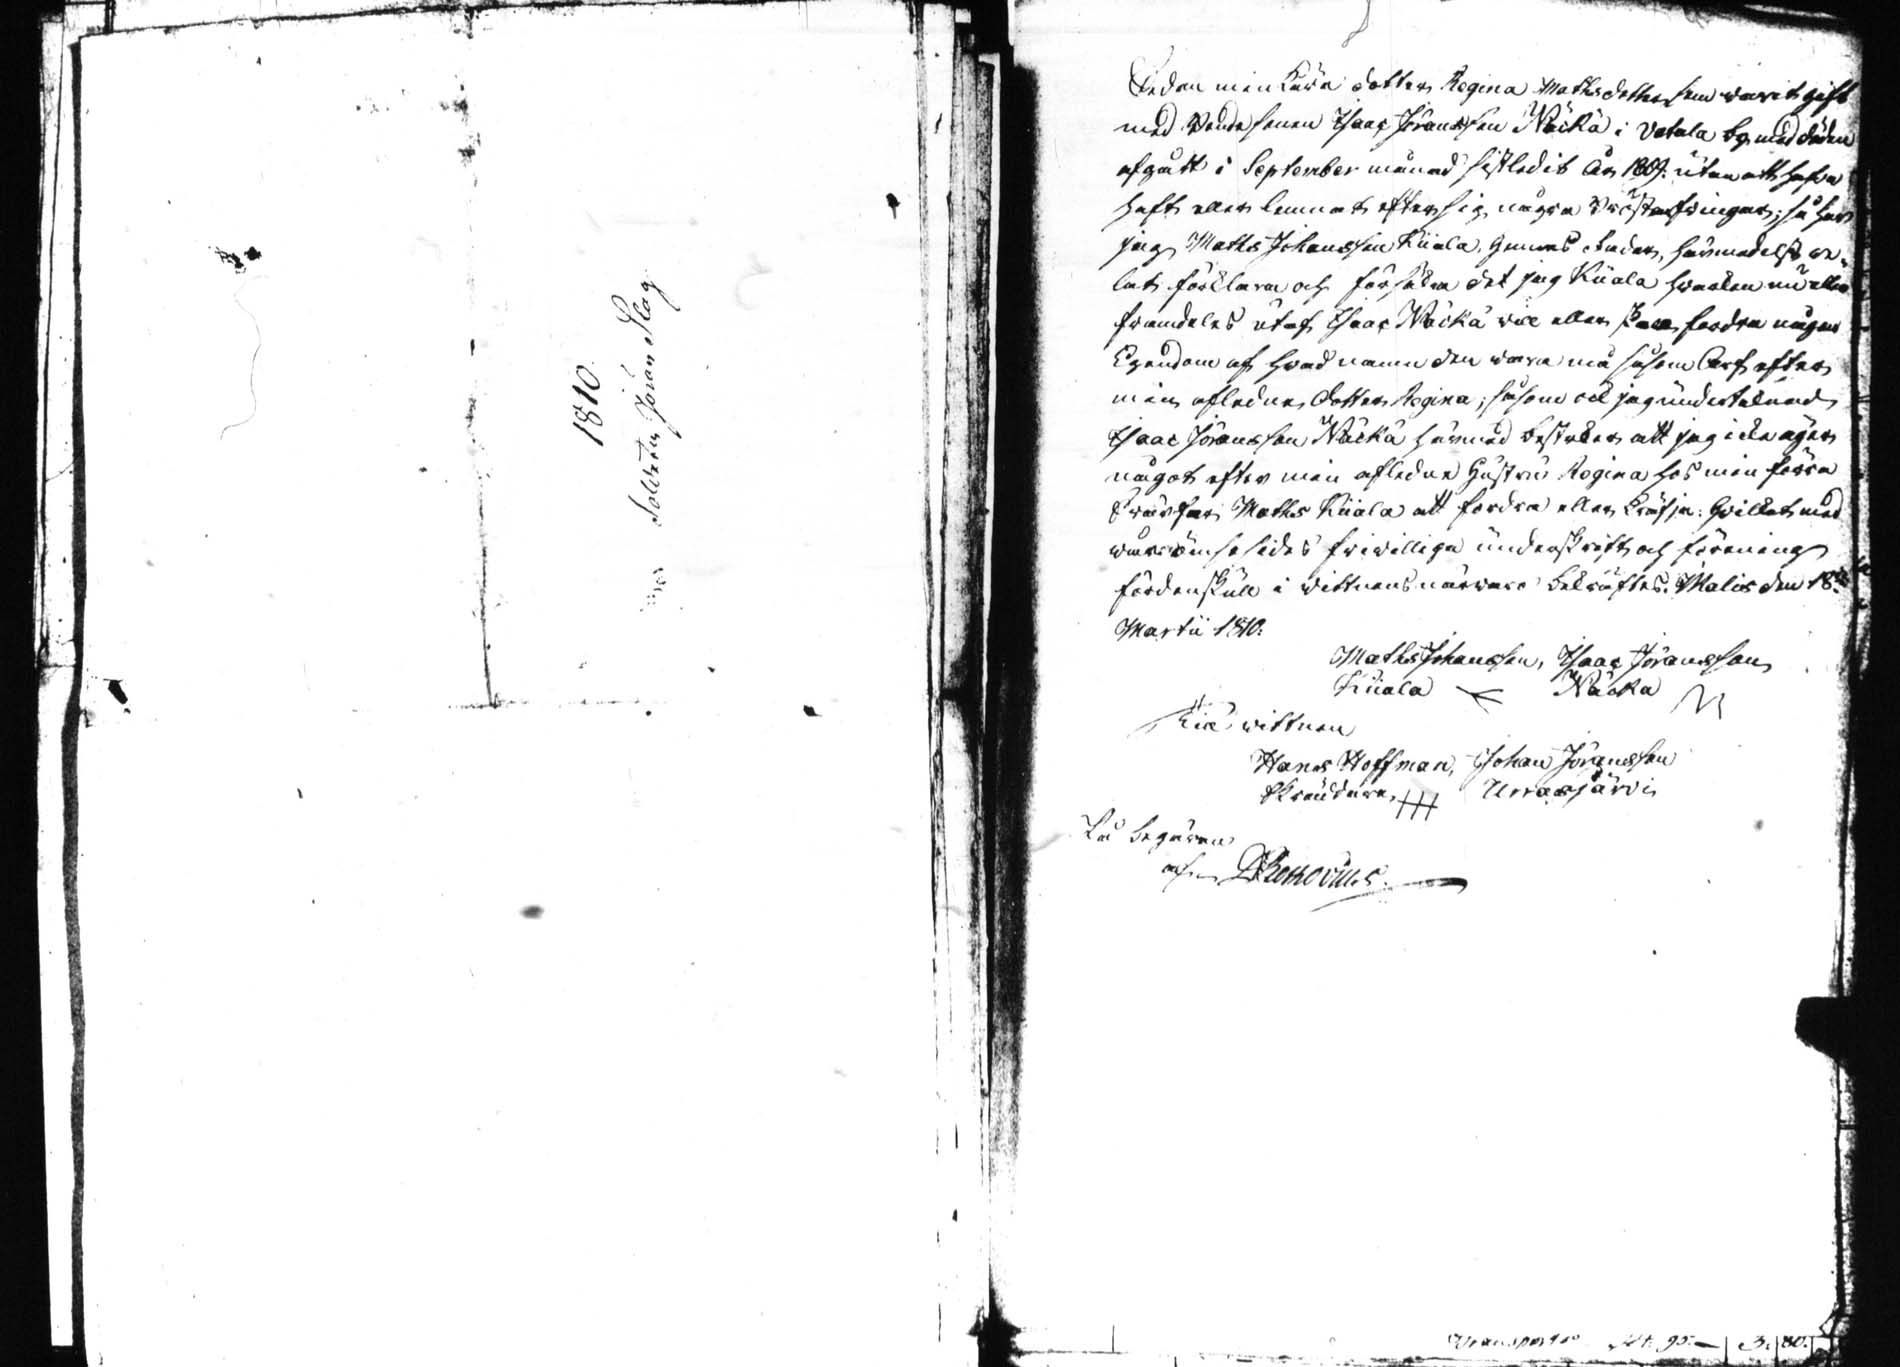 1810
Soldaten Jöran Slag
Sedan min Kära dotter Regina Mathsdotter som warit gift
med Bonde sonen Isaac Jöransson Näckä i Votala by med döden
afgått i September månad sistledit År 1809. utan att hafva
haft eller lemnat efter sig några Bröstarfvingar; så har
jag Maths Johansson Kiiala, genom detta, härmedelst ve-
lat förklara och försäkra det jag Kiiala hvarken nu eller
framdeles utaf Isaac Näckä vill eller skall fordra någon
Egendom af hvad namn den vara må såsom Arf efter
min afledne dotter Regina; såsom ock jag undertecknad
Isaac Jöransson Näckä härmed besteder att jag icke äger
något efter min afledne Hustru Regina hos min förra
Svärfar Maths Kiiala att fordra eller kräfja: Hvilket med
wår ömsesides friwilliga underskrift och förening
fördenskull i wittnens närvaro bekräftes. Malis den 18de
Martii 1810:
Maths Johansson, Isaac Jöransson
Kiiala Näckä
wittnen
Hans Hoffman, Johan Jöransson
Skräddare, Urraisjärvi
På begäran
af
Transporter 95. 3. 80.